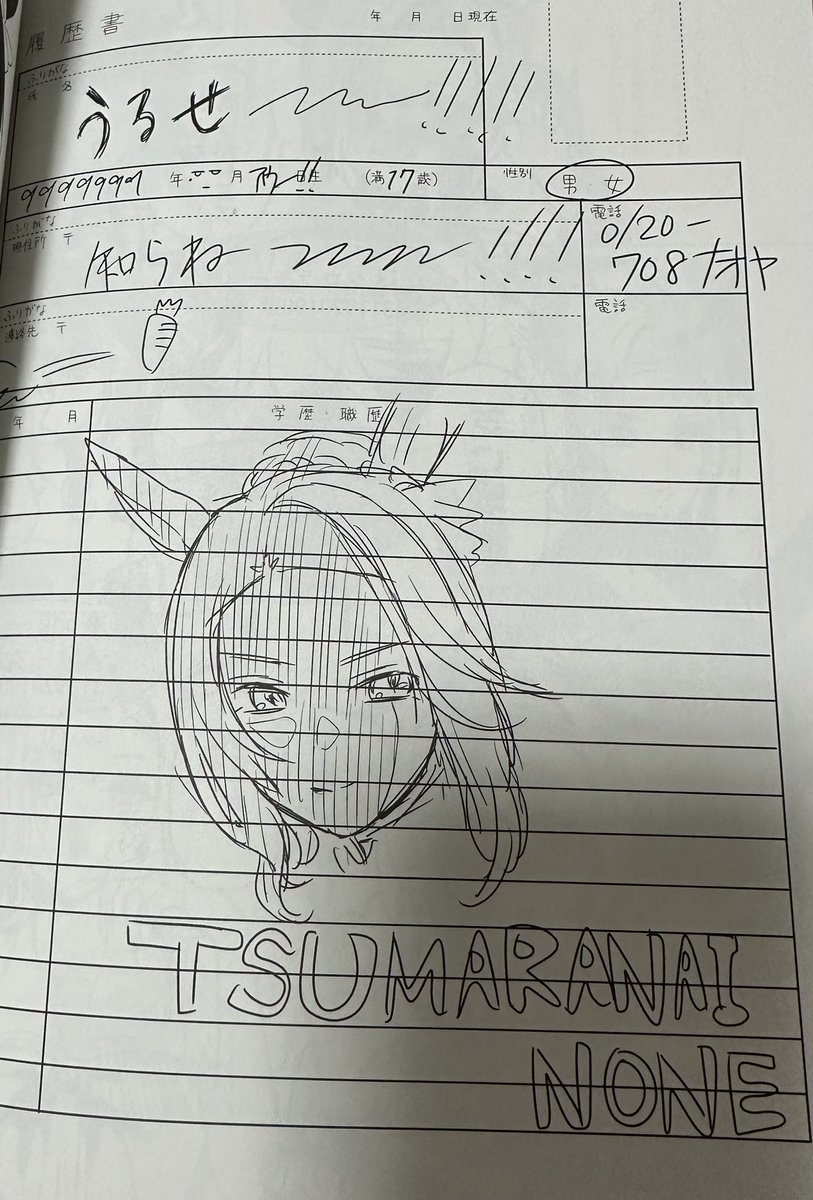 履歴書
年 月 日現在
ふりがな
氏 名
うるせ〜〜!!!!!!
999999 年 月 日生 (満17歳)
性別 男・女
ふりがな
現住所 〒
知らね〜〜!!!!
電話
0120-
708ナオヤ
ふりがな
連絡先 〒
電話
年 月 学歴・職歴
TSUMARANAI
NONE